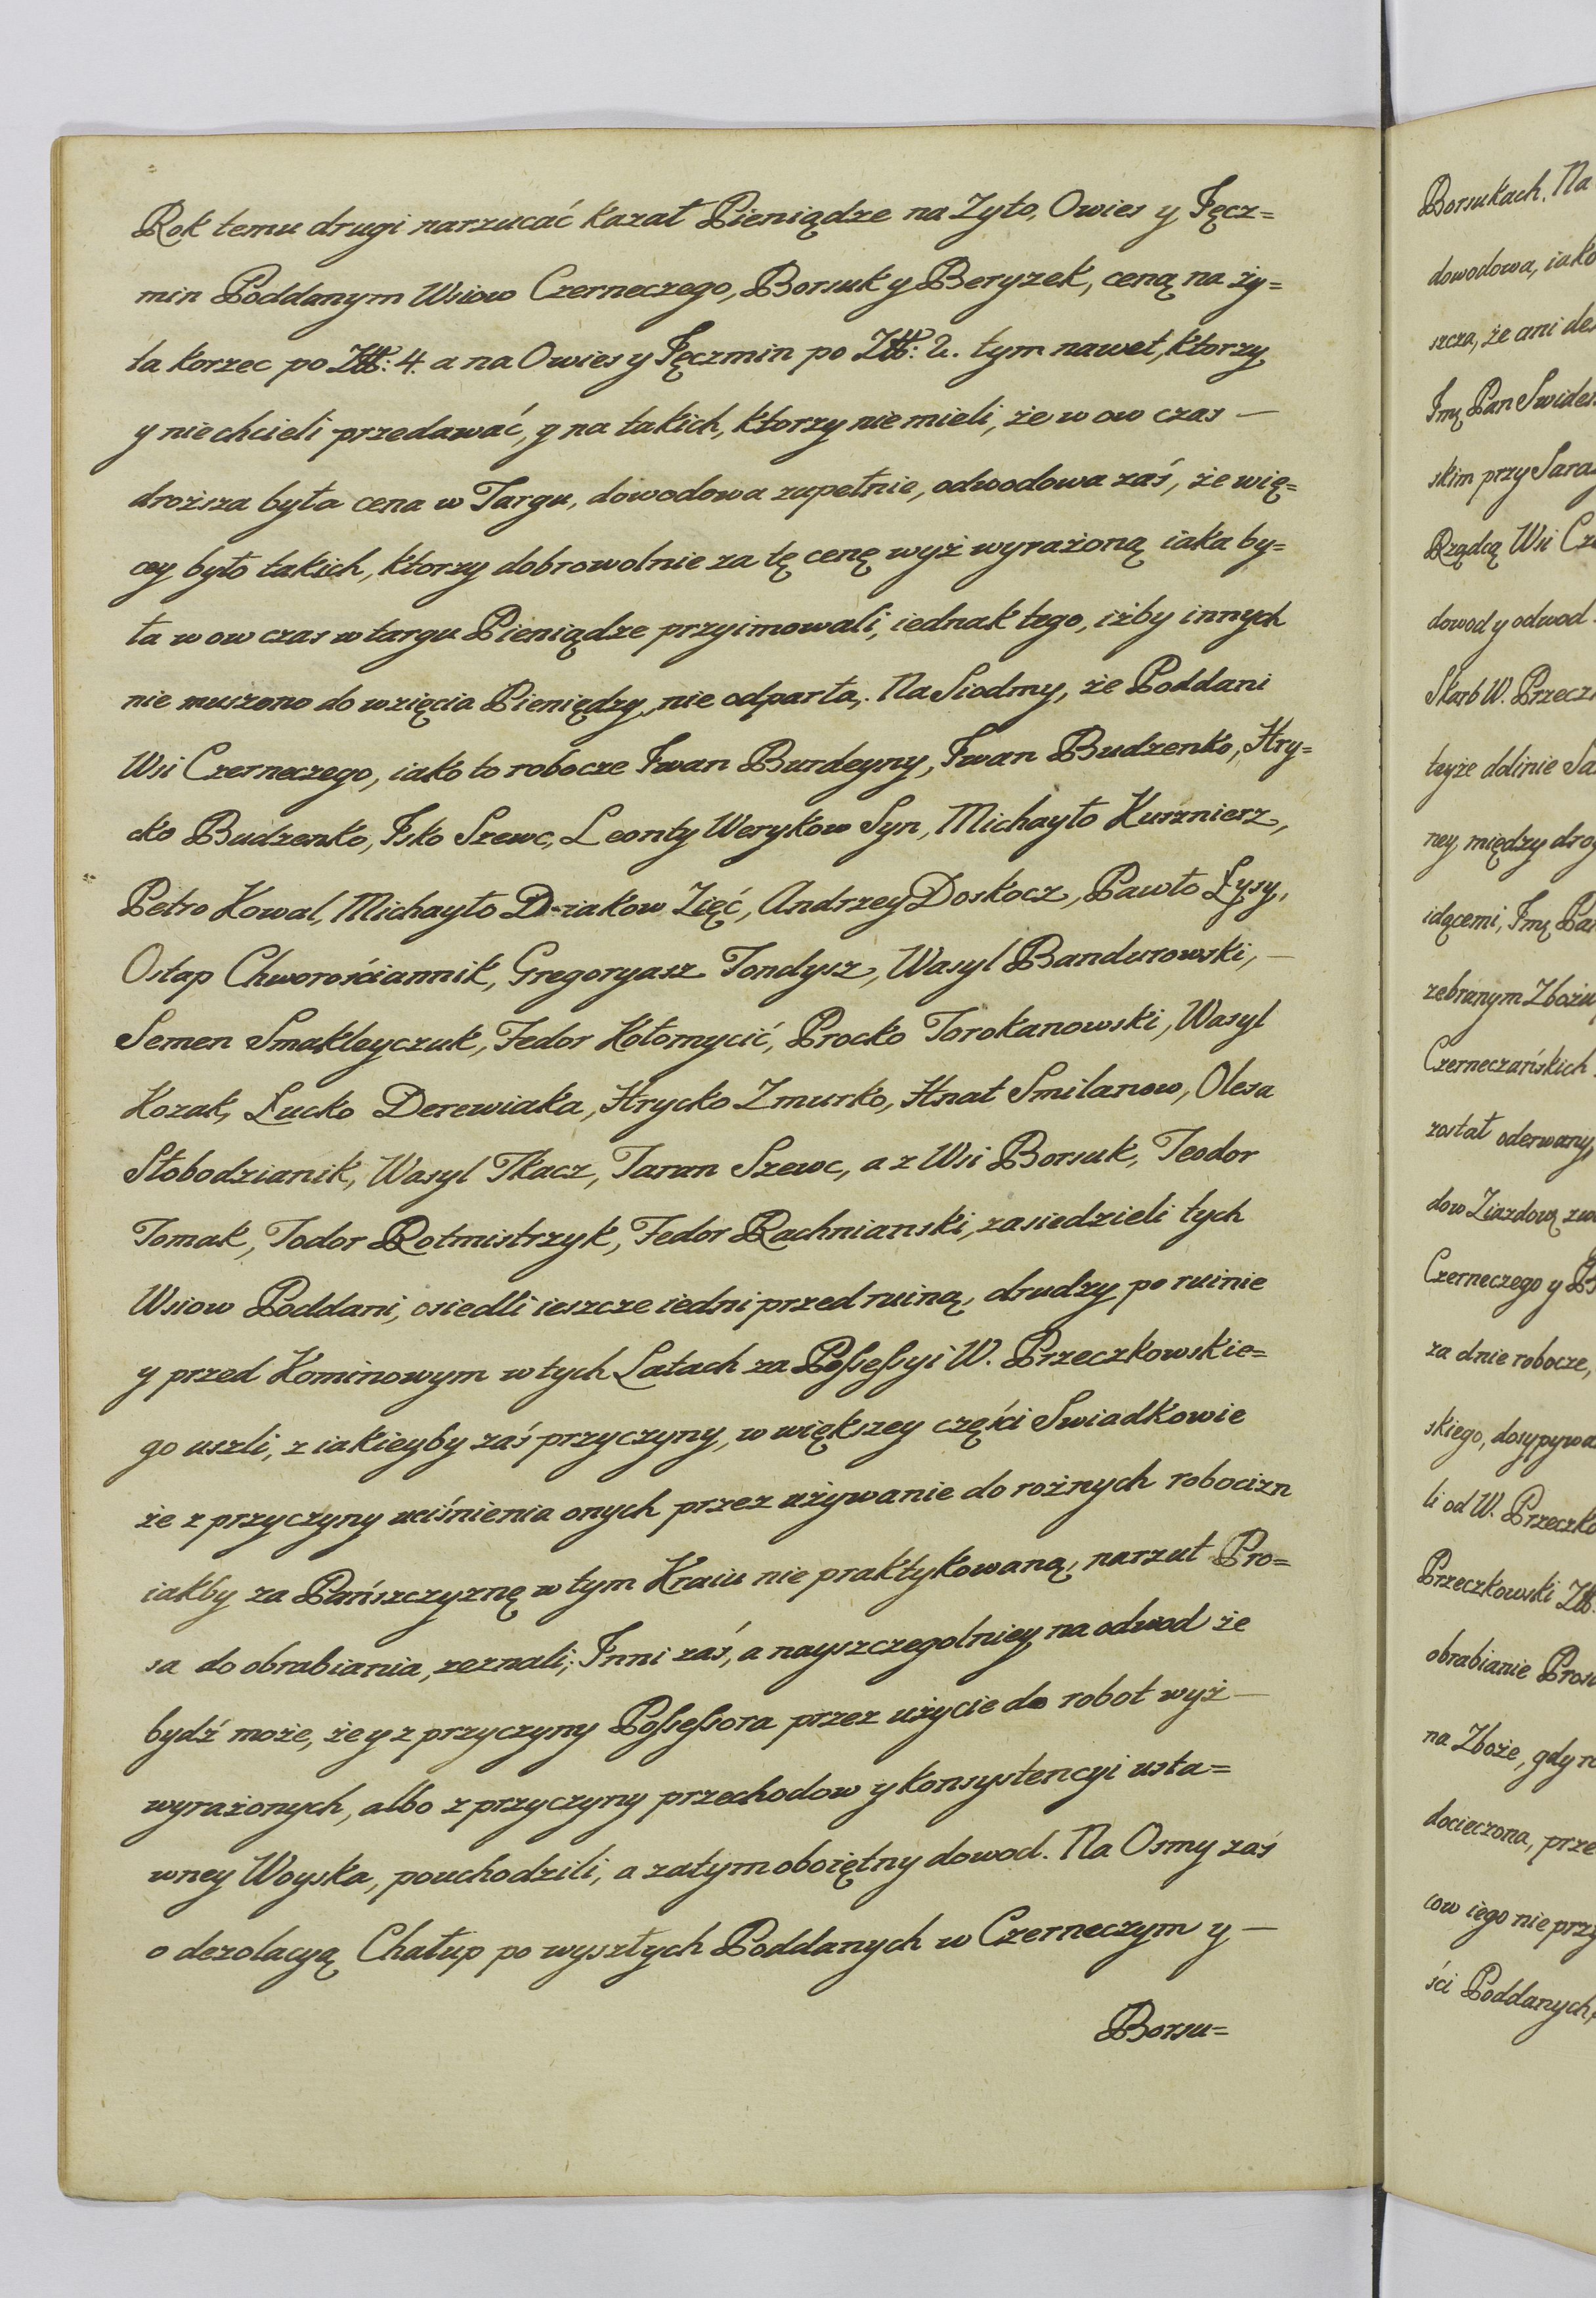 Rok temu drugi narzucać kazał Pieniądze na Zyto, Owies y Jęcz=
min Poddanym Wsiow Czerneczego, Borsuk y Beryzek, ceną na ży=
ta korzec po Złł: 4. a na Owies y Jęczmin po Złł: 2. tym nawet, ktorzy
y nie chcieli przedawać, y na takich, ktorzy nie mieli, że w ow czas —
droższa była cena w Targu, dowodowa zupełnie, odwodowa zaś, że wię=
cey było takich, ktorzy dobrowolnie za tę cenę wyż wyrażoną iaka by=
ła w ow czas w targu Pieniądze przyimowali, iednak tego, iżby innych
nie muszono do wzięcia Pieniędzy, nie odparła. Na Siodmy, że Poddani
Wsi Czerneczego, iako to robocze Iwan Burdeyny, Iwan Budzenko, Hry=
cko Budzenko, Isko Szewc, Leonty Werykow Syn, Michayło Kurznierz,
Petro Kowal, Michayło Dziakow Zięć, Andrzey Doskocz, Pawło Łysy,
Ostap Chworościannik, Gregoryasz Tondysz, Wasyl Bandurowski, —
Semen Smakleyczuk, Fedor Kołomycić, Procko Torokanowski, Wasyl
Kozak, Łucko Derewiaka, Hrycko Zmurko, Hnat Smilanow, Olexa
Słobodzianik, Wasyl Tkacz, Taran Szewc, a z Wsi Borsuk, Teodor
Tomak, Todor Rotmistrzyk, Fedor Rachnianski, zasiedzieli tych
Wsiow Poddani, osiedli ieszcze iedni przed ruiną, drudzy po ruinie
y przed Kominowym w tych Latach za Possessyi W. Przeczkowskie=
go uszli, z iakieyby zaś przyczyny, w większey części Swiadkowie
że z przyczyny uciśnienia onych przez używanie do rożnych robocizn
iakby za Pańszczyznę w tym Kraiu nie praktykowaną, narzut Pro=
sa do obrabiania, zeznali; Inni zaś, a nayszczegolniey na odwod że
bydź może, że y z przyczyny Possessora przez użycie do robot wyż —
wyrażonych, albo z przyczyny przechodow y konsystencyi usta=
wney Woyska, pouchodzili, a zatym oboiętny dowod. Na Osmy zaś
o dezolacyą Chałup po wyszłych Poddanych w Czerneczym y —
Borsu=
Borsukach. Na
dowodowa, iako
szcza, że ani de
Imę Pan Swider
skim przy Sara
Rządcą Wsi Cze
dowod y odwod
Skarb W. Przecz
teyże dolinie Sa
ney, między drog
idącemi, Imę Pa
zebranym Zbożu
Czerneczańskich
został oderwany,
dow Ziazdową zwa
Czerneczego y B
za dnie robocze,
skiego, dosypywa
li od W. Przeczko
Przeczkowski Zł
obrabianie Prosa
na Zboże, gdy ro
docieczona, prze
cow iego nie przy
ści Poddanych,